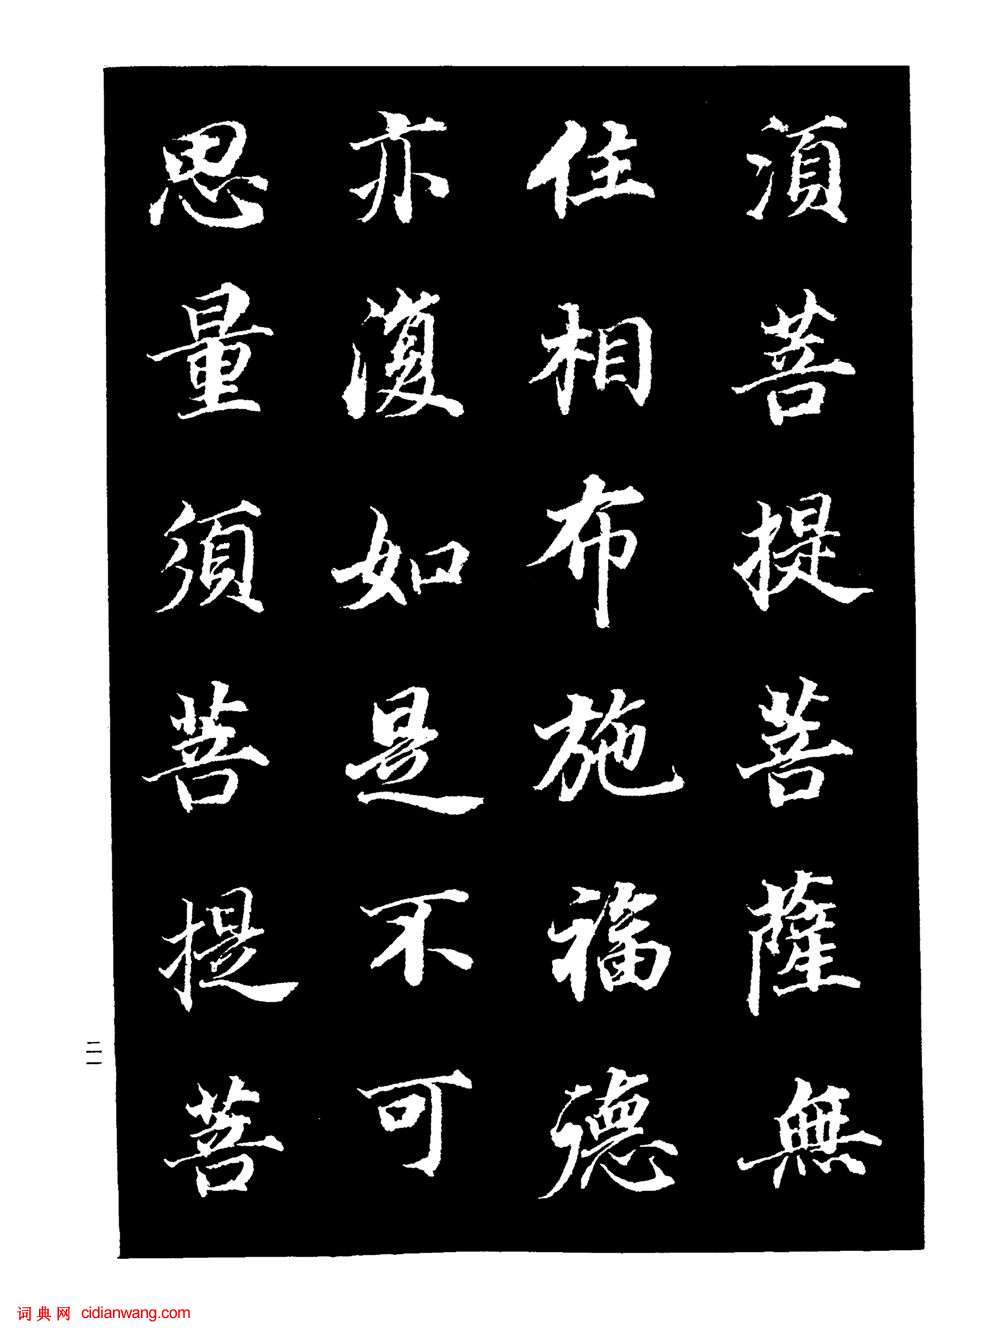 須菩提菩薩無
住相布施福德
亦復如是不可
思量須菩提菩
二一
词典网 cidianwang.com